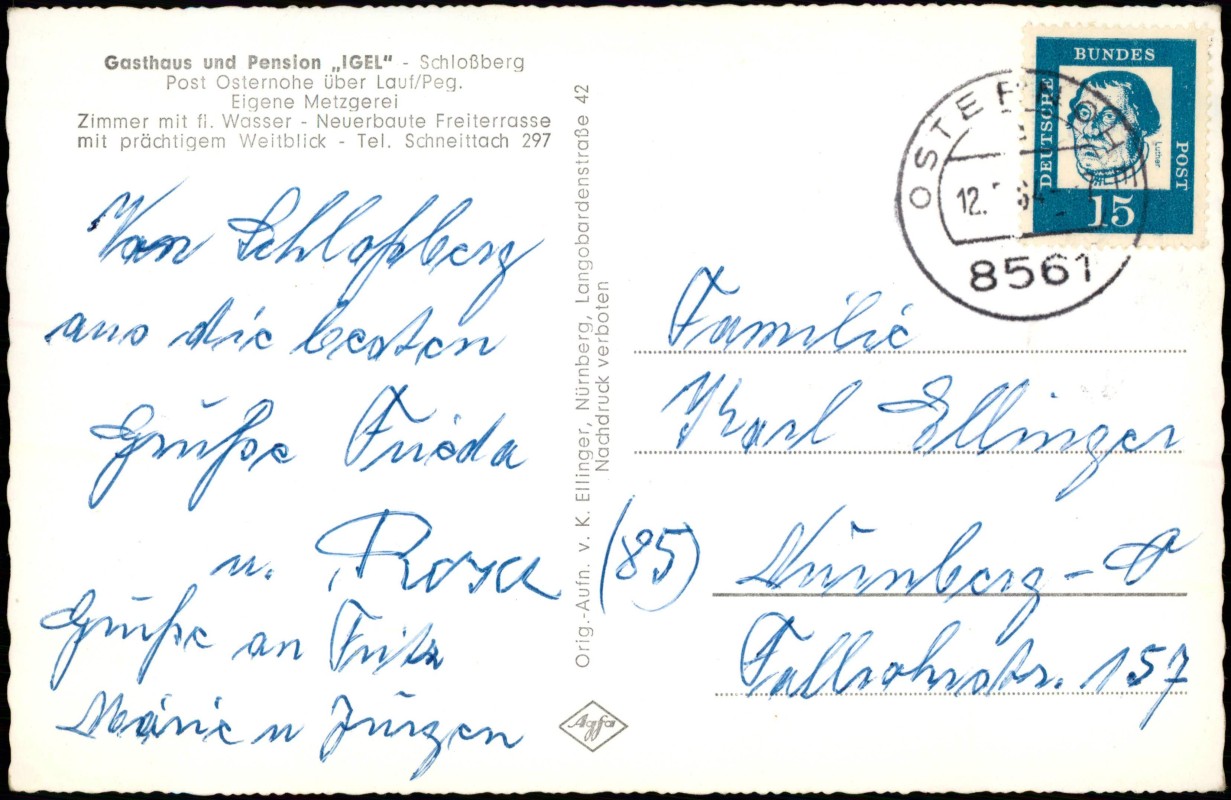 Gasthaus und Pension „IGEL“ - Schloßberg
Post Osternohe über Lauf/Peg.
Eigene Metzgerei
Zimmer mit fl. Wasser - Neuerbaute Freiterrasse
mit prächtigem Weitblick - Tel. Schneittach 297
Von Schloßberg
aus die besten
Grüße Frieda
u. Rosa
Grüße an Fritz
Marie u Jürgen
Orig.-Aufn. v. K. Ellinger, Nürnberg, Langobardenstraße 42
Nachdruck verboten
Agfa
12.
8561
DEUTSCHE
BUNDES
POST
Luther
15
Familie
Karl Ellinger
(85) Nürnberg-O
Fallrohrstr. 157